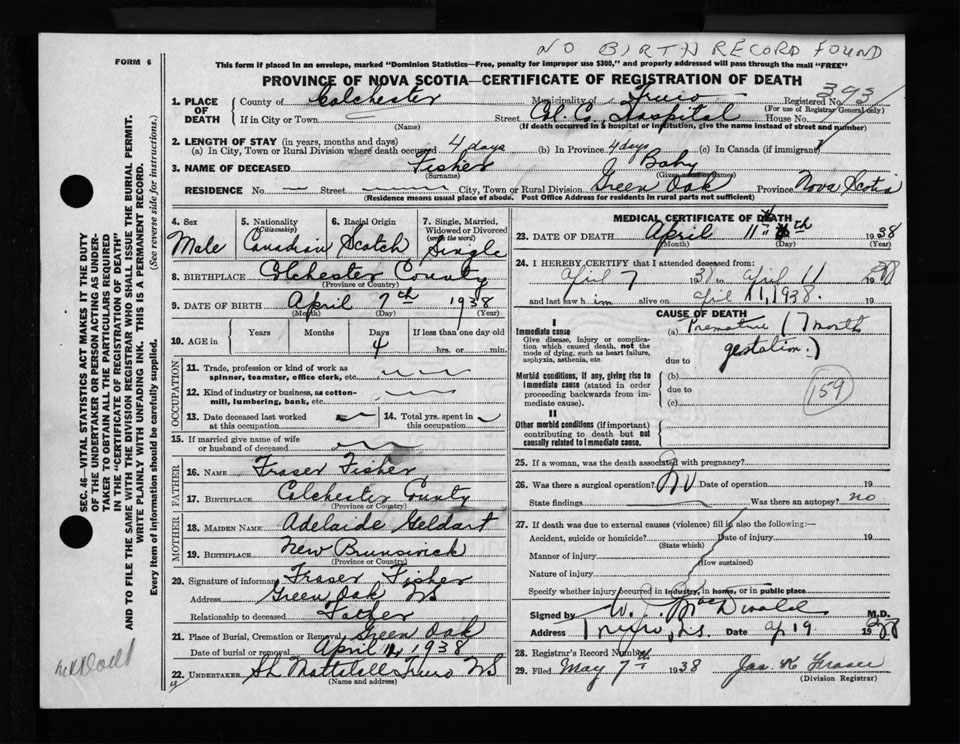 NO BIRTH RECORD FOUND
FORM 6
This form if placed in an envelope, marked "Dominion Statistics—Free, penalty for improper use $300," and properly addressed will pass through the mail "FREE"
PROVINCE OF NOVA SCOTIA—CERTIFICATE OF REGISTRATION OF DEATH
1. PLACE OF DEATH
County of Colchester Municipality of Truro Registered No. 393
(For use of Registrar General only)
If in City or Town Street Col. Co. Hospital House No.
(Name) (If death occurred in a hospital or institution, give the name instead of street and number)
2. LENGTH OF STAY (in years, months and days)
(a) In City, Town or Rural Division where death occurred 4 days (b) In Province 4 days (c) In Canada (if immigrant)
3. NAME OF DECEASED Fisher Baby
(Surname) (Given Names)
RESIDENCE No. — Street City, Town or Rural Division Green Oak Province Nova Scotia
(Residence means usual place of abode. Post Office Address for residents in rural parts not sufficient)
4. Sex Male
5. Nationality (Citizenship) Canadian
6. Racial Origin Scotch
7. Single, Married, Widowed or Divorced (write the word) Single
8. BIRTHPLACE Colchester County
(Province or Country)
9. DATE OF BIRTH April 7th 1938
(Month) (Day) (Year)
10. AGE in Years Months Days 4 If less than one day old hrs. or min.
OCCUPATION
11. Trade, profession or kind of work as spinner, teamster, office clerk, etc.
12. Kind of industry or business, as cotton-mill, lumbering, bank, etc.
13. Date deceased last worked at this occupation
14. Total yrs. spent in this occupation
15. If married give name of wife or husband of deceased
FATHER
16. NAME Fraser Fisher
17. BIRTHPLACE Colchester County
(Province or Country)
MOTHER
18. MAIDEN NAME Adelaide Geldart
19. BIRTHPLACE New Brunswick
(Province or Country)
20. Signature of informant Fraser Fisher
Address Green Oak NS
Relationship to deceased Father
21. Place of Burial, Cremation or Removal Green Oak
Date of burial or removal April 1938
22. UNDERTAKER Truro NS
(Name and address)
MEDICAL CERTIFICATE OF DEATH
23. DATE OF DEATH April 11th 1938
(Month) (Day) (Year)
24. I HEREBY CERTIFY that I attended deceased from:
April 7 1938 April 11 1938
and last saw him alive on April 11, 1938. 19
CAUSE OF DEATH
I
Immediate cause
Give disease, injury or complication which caused death, not the mode of dying, such as heart failure, asphyxia, asthenia, etc.
(a) Premature (7 month gestation.)
due to
Morbid conditions, if any, giving rise to immediate cause (stated in order proceeding backwards from immediate cause).
(b)
due to
(c)
159
II
Other morbid conditions (if important) contributing to death but not causally related to immediate cause.
25. If a woman, was the death associated with pregnancy?
26. Was there a surgical operation? No Date of operation 19
State findings Was there an autopsy? no
27. If death was due to external causes (violence) fill in also the following:
Accident, suicide or homicide? Date of injury 19
(State which)
Manner of injury
(How sustained)
Nature of injury
Specify whether injury occurred in industry, in home, or in public place
Signed by W. J. MacDonald M.D.
Address Truro, N.S. Date Ap 19 1938
28. Registrar's Record Number
29. Filed May 7th 1938 Jas. K. Fraser
(Division Registrar)
SEC. 46—VITAL STATISTICS ACT MAKES IT THE DUTY
OF THE UNDERTAKER OR PERSON ACTING AS UNDER-
TAKER TO OBTAIN ALL THE PARTICULARS REQUIRED
IN THE "CERTIFICATE OF REGISTRATION OF DEATH"
AND TO FILE THE SAME WITH THE DIVISION REGISTRAR WHO SHALL ISSUE THE BURIAL PERMIT.
WRITE PLAINLY WITH UNFADING INK. THIS IS A PERMANENT RECORD.
Every item of information should be carefully supplied. (See reverse side for instructions.)